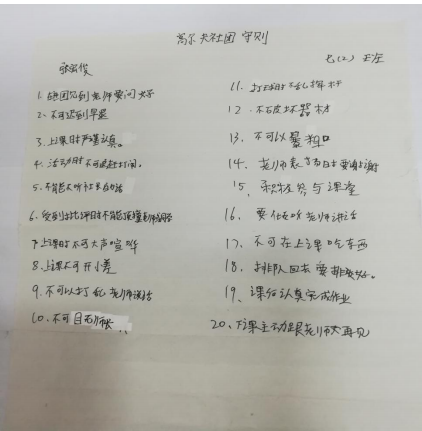 高尔夫社团守则
七(2) 
张宸俊
1. 进团见到老师要问好
2. 不可迟到早退
3. 上课时严肃认真。
4. 活动时不可追赶打闹。
5. 不能不听社长的话
6. 受到批评时不能顶撞老师
7. 上课时不可大声喧哗
8. 上课不可开小差
9. 不可以打乱老师讲话
10. 不可目无师长
11. 打球时不乱挥杆
12. 不破坏器材
13. 不可以暴粗口
14. 老师表扬时要道谢
15. 积极参与课堂
16. 要仔听老师讲话
17. 不可在上课吃东西
18. 排队回去要排整好。
19. 课后认真完成作业
20. 下课主动跟老师说再见